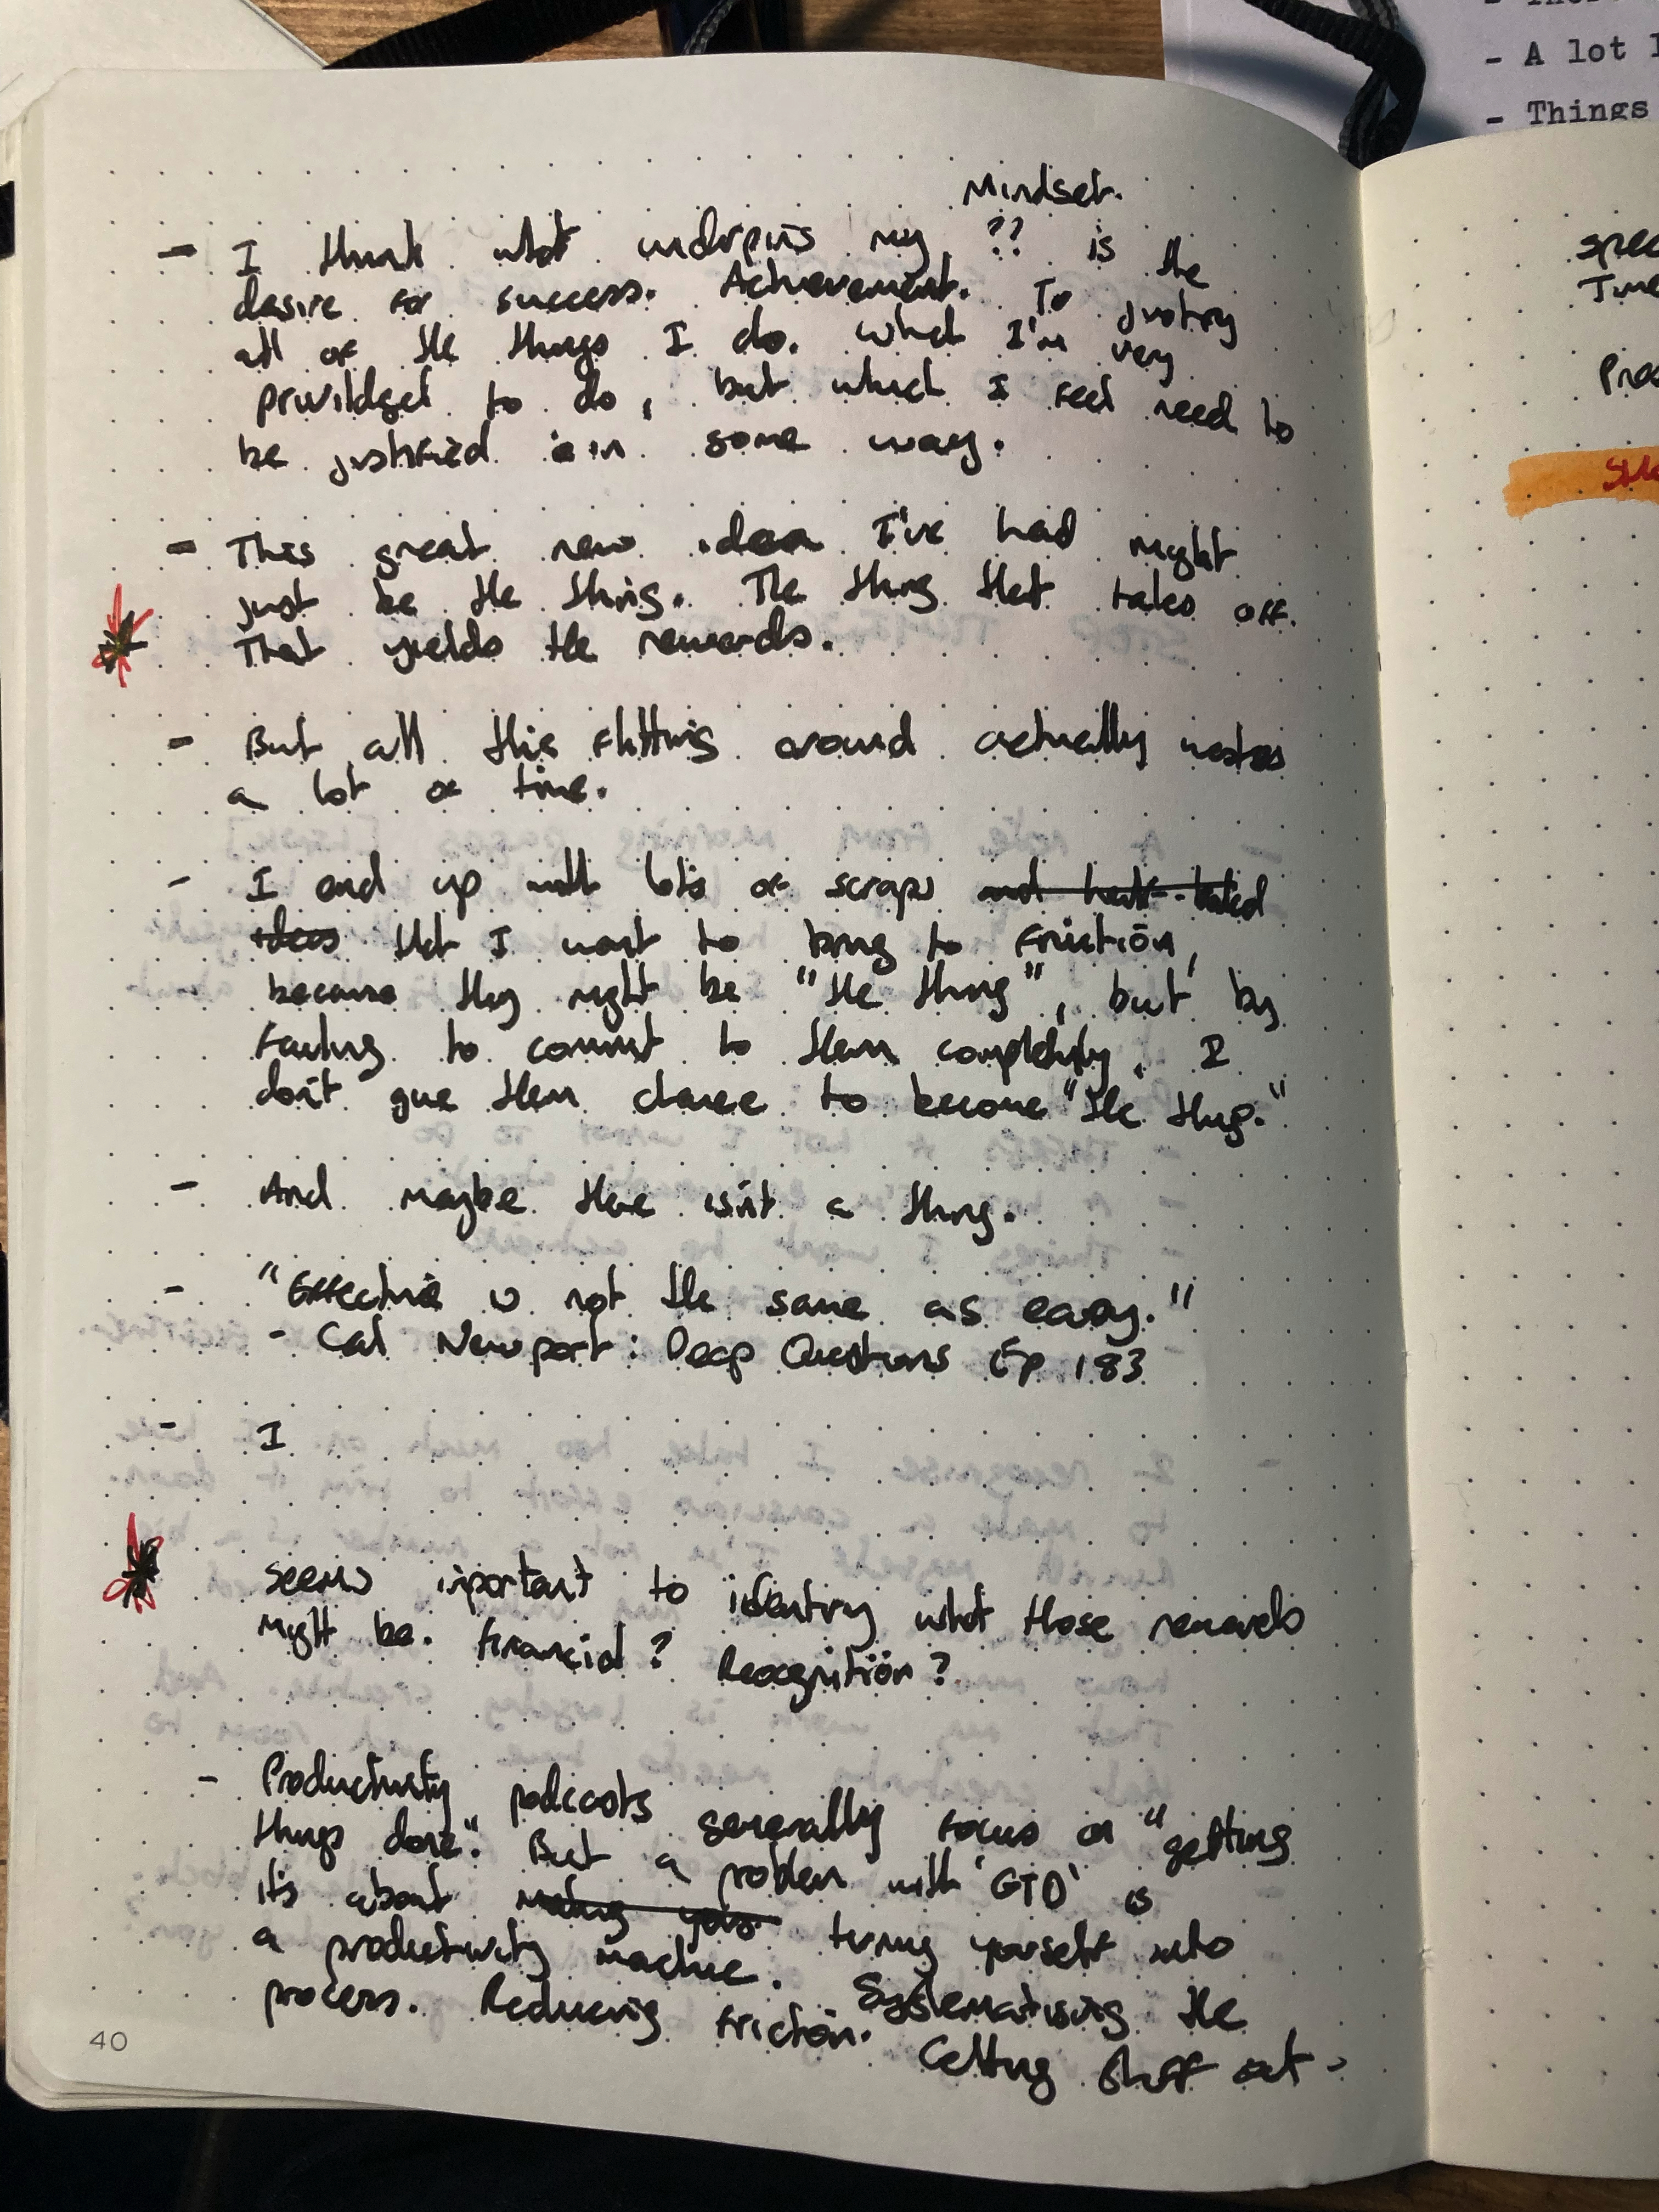 - A lot
- Things
Mindset.
- I think what underpins my ?? is the
desire for success. Achievement. To justify
all of the things I do. What I'm very
privildged to do, but which I feel need to
be justified in some way.
- This great new idea I've had might
just be the thing. The thing that takes off.
That yields the rewards.
- But all this flitting around actually wastes
a lot of time.
- I end up with lots of scraps and half-baked
ideas that I want to bring to fruition,
because they might be "the thing", but by
failing to commit to them completely, I
don't give them chance to become "the thing."
- And maybe there isn't a thing.
- "Effective is not the same as easy."
- Cal Newport: Deep Questions Ep 183
- I
Seems important to identify what those rewards
might be. Financial? Recognition?
- Productivity podcasts generally focus on "getting
things done". But a problem with 'GTD' is
it's about making your turning yourself into
a productivity machine. Systematising the
process. Reducing friction. Getting stuff out
40
spec
Time
Proc